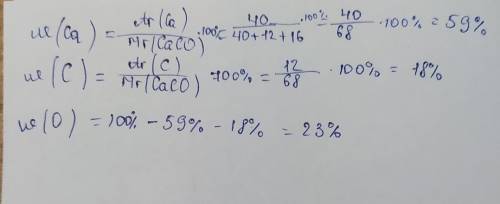 w(Ca) = Ar(Ca)/Mr(CaCO) · 100% = 40/(40+12+16) · 100% = 40/68 · 100% = 59%
w(C) = Ar(C)/Mr(CaCO) · 100% = 12/68 · 100% = 18%
w(O) = 100% - 59% - 18% = 23%